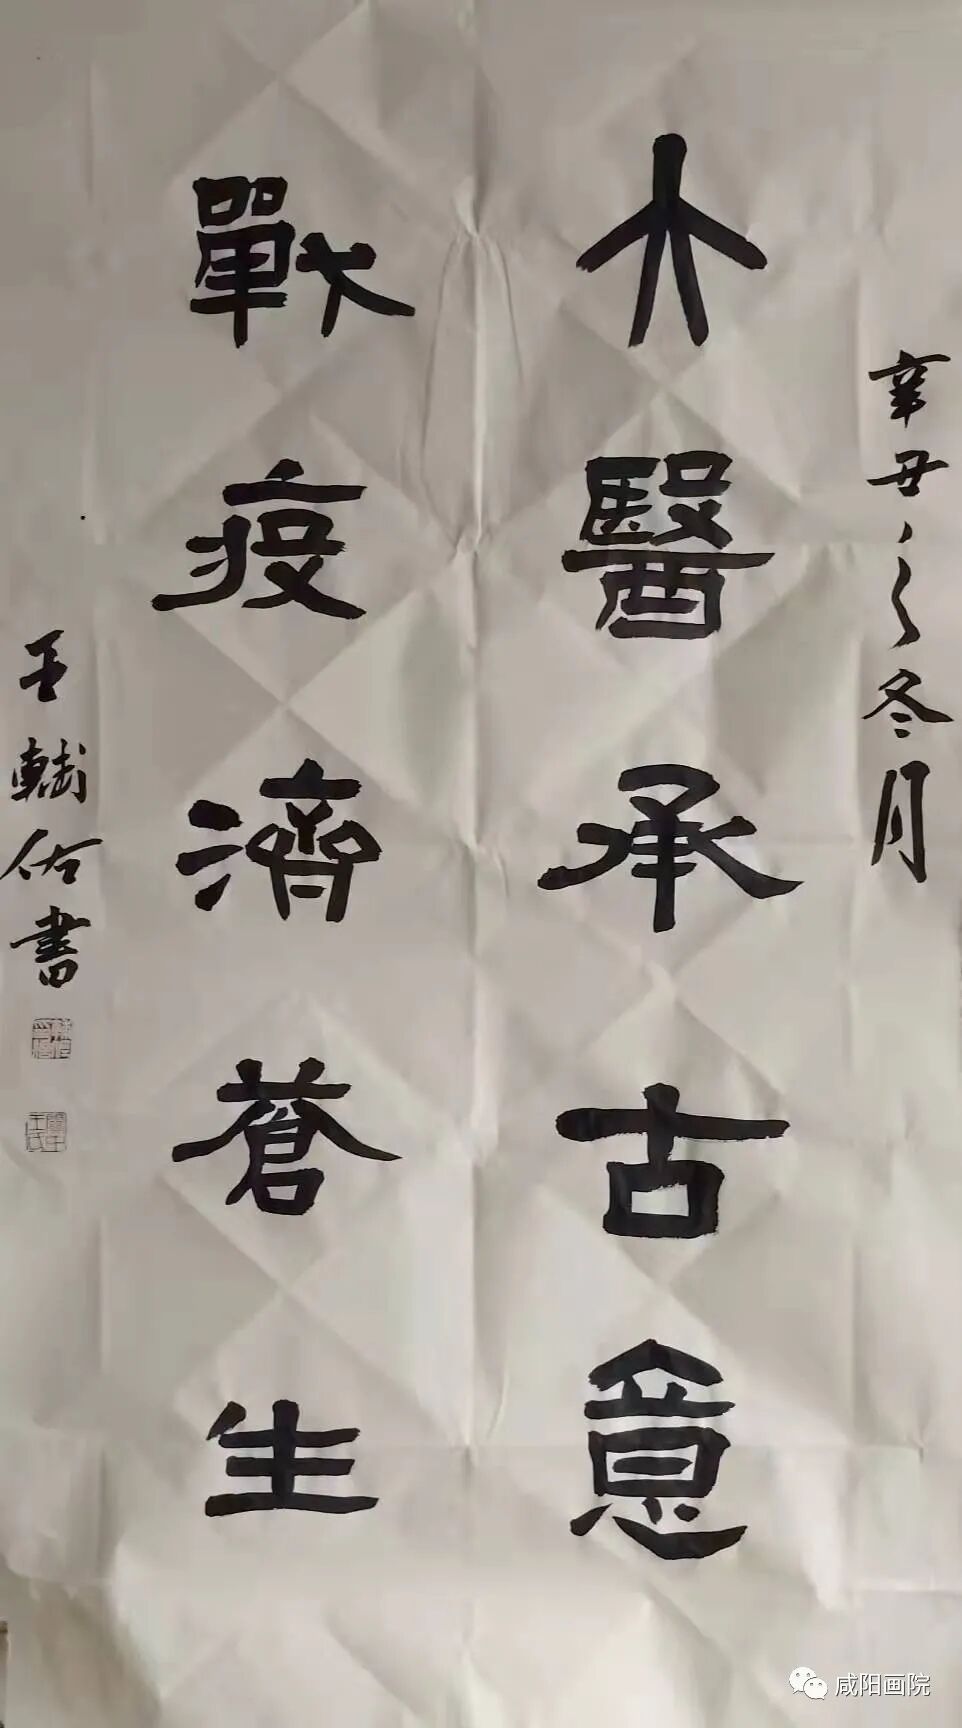 辛丑之冬月
大醫承古意
戰疫濟蒼生
王輔佑書
咸阳画院